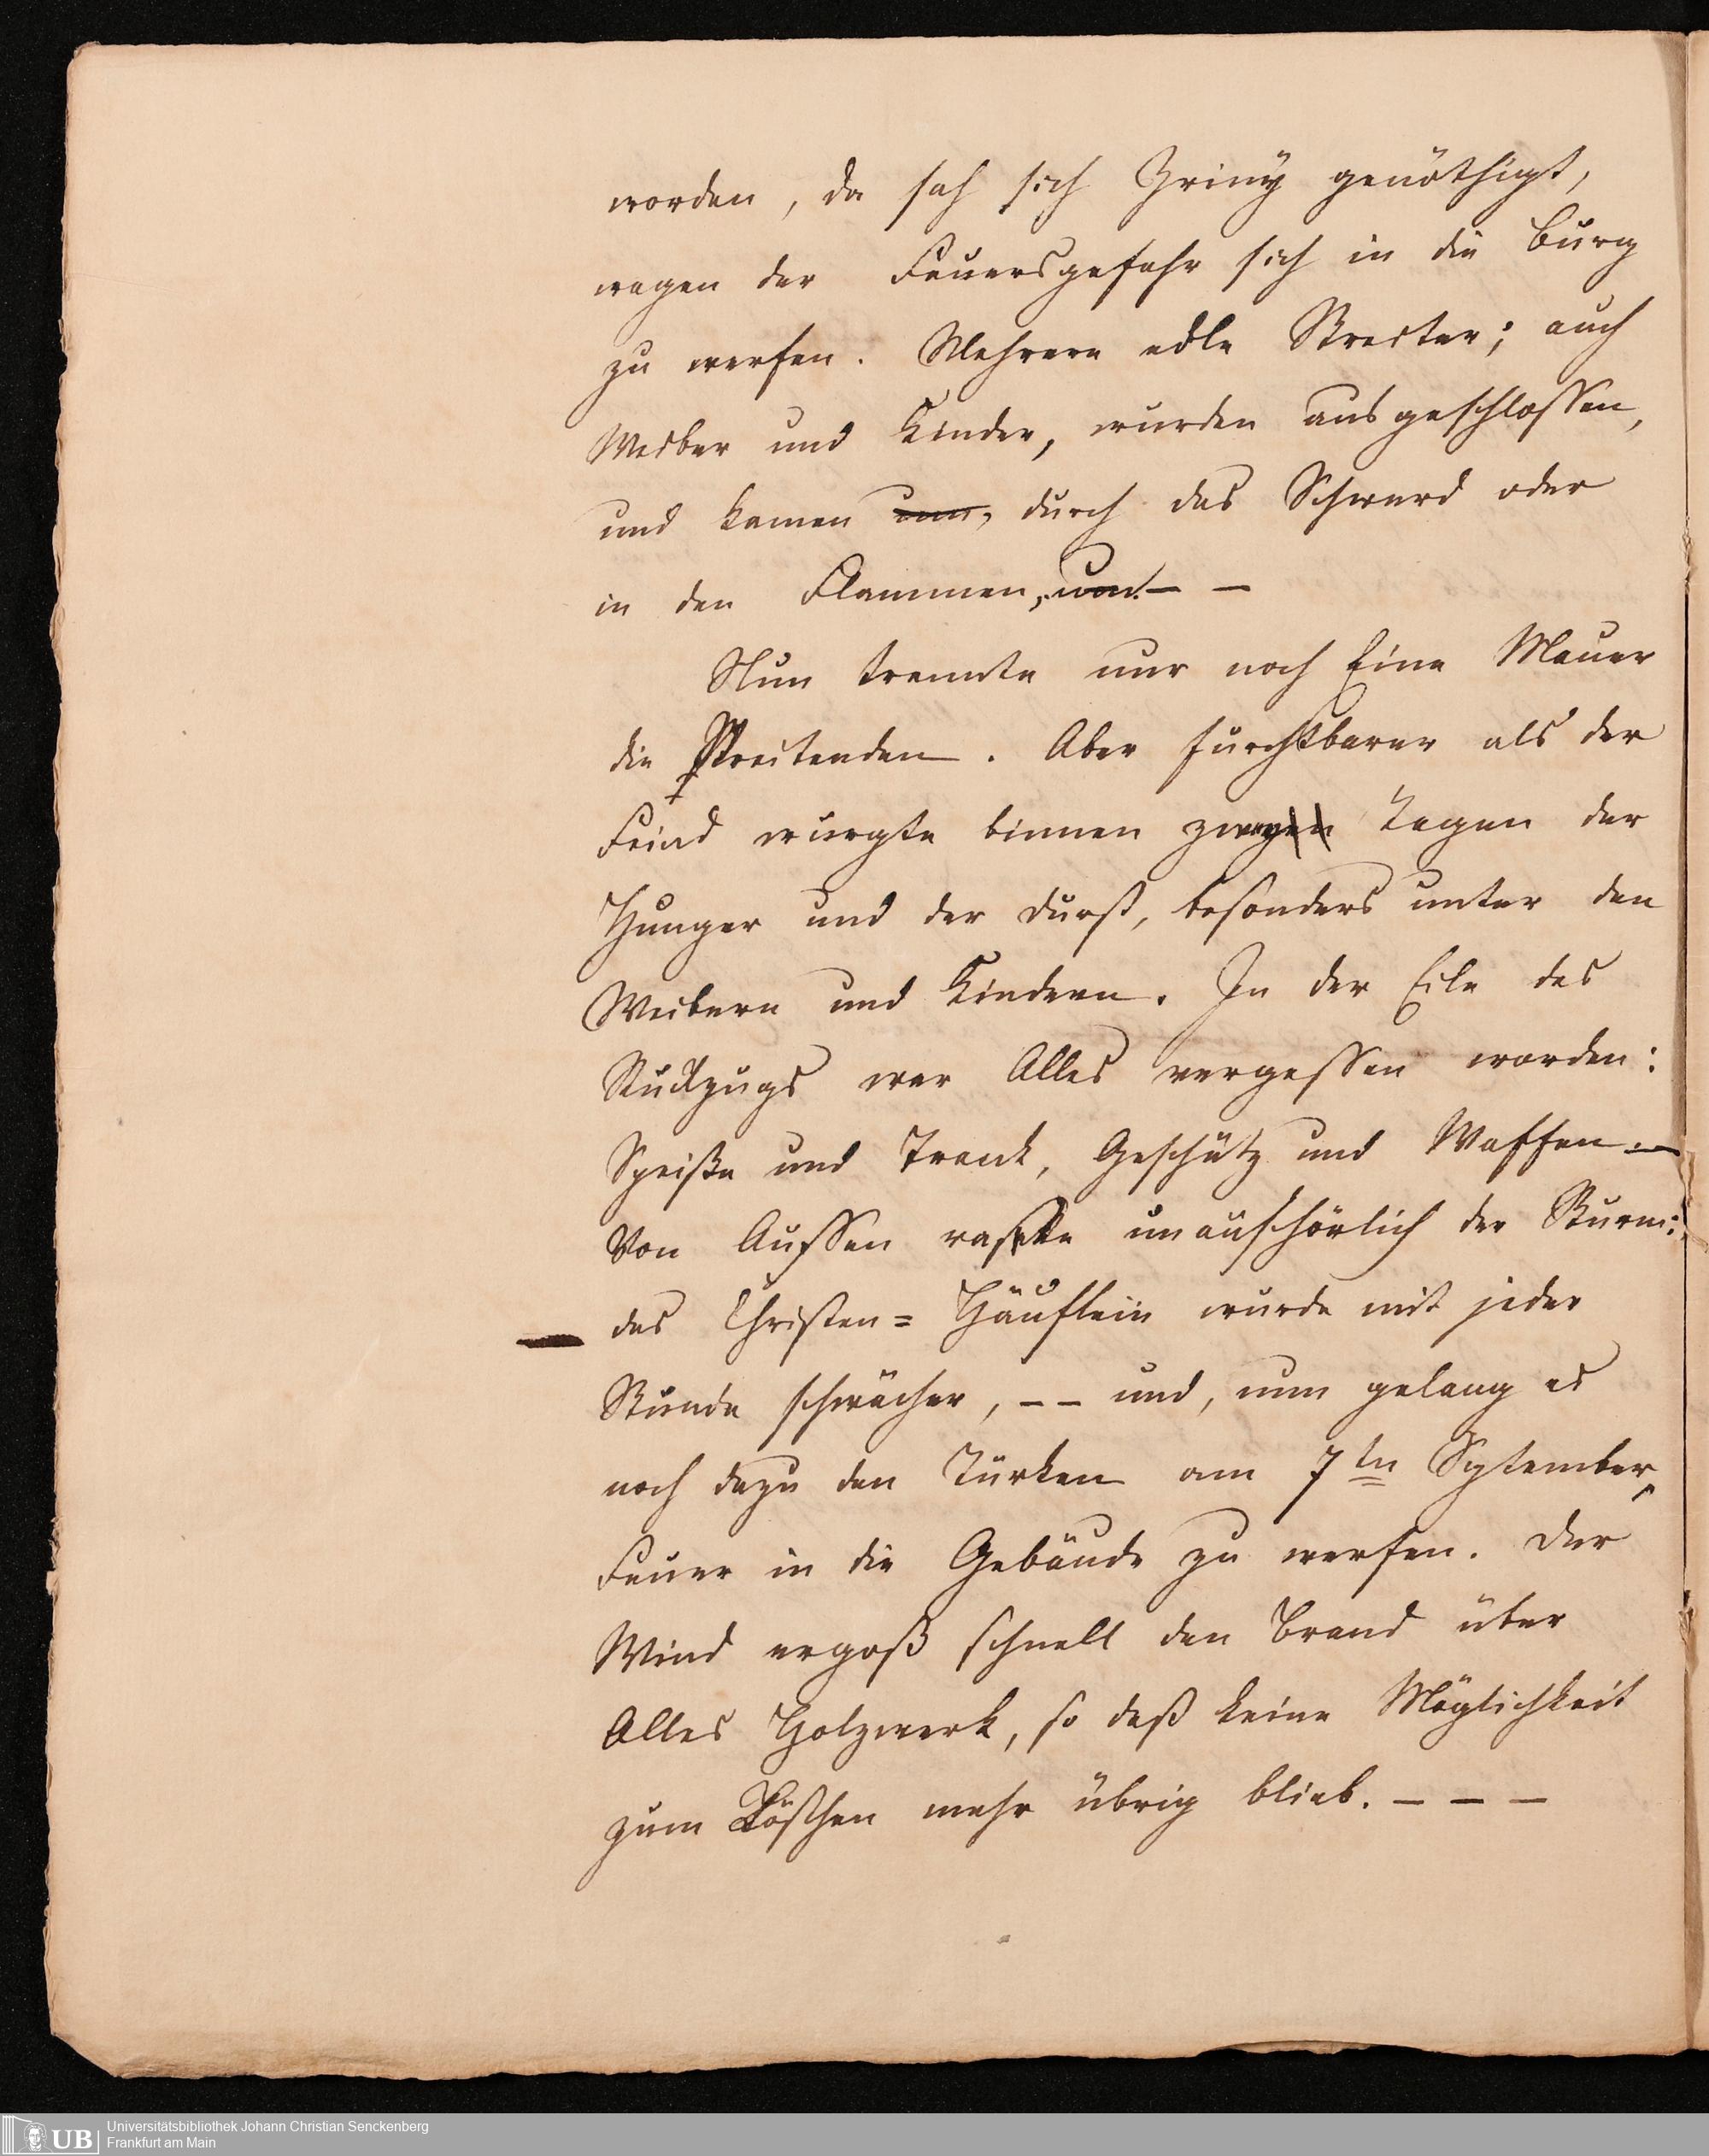 worden, da sah sich Zriny genöthigt,
wegen der Feuersgefahr sich in die Burg
zu werfen. Mehrere edle Streiter; auch
Weiber und Kinder, wurden ausgeschlossen,
und kamen um, durch das Schwerd oder
in den Flammen, um. – –
Nun trennte nur noch Eine Mauer
die Streitenden. Aber furchtbarer als der
Feind würgte binnen zweyen Tagen der
Hunger und der Durst, besonders unter den
Weibern und Kindern. In der Eile des
Rückzugs war Alles vergessen worden:
Speiße und Trank, Geschütz und Waffen. –
Von Aussen raste unaufhörlich der Sturm:
das Christen= Häuflein wurde mit jeder
Stunde schwächer, – – und, nun gelang es
noch dazu den Türken am 7ten September,
Feuer in die Gebäude zu werfen. Der
Wind ergoß schnell den Brand über
Alles Holzwerk, so daß keine Möglichkeit
zum Löschen mehr übrig blieb. – – –
UB
Universitätsbibliothek Johann Christian Senckenberg
Frankfurt am Main